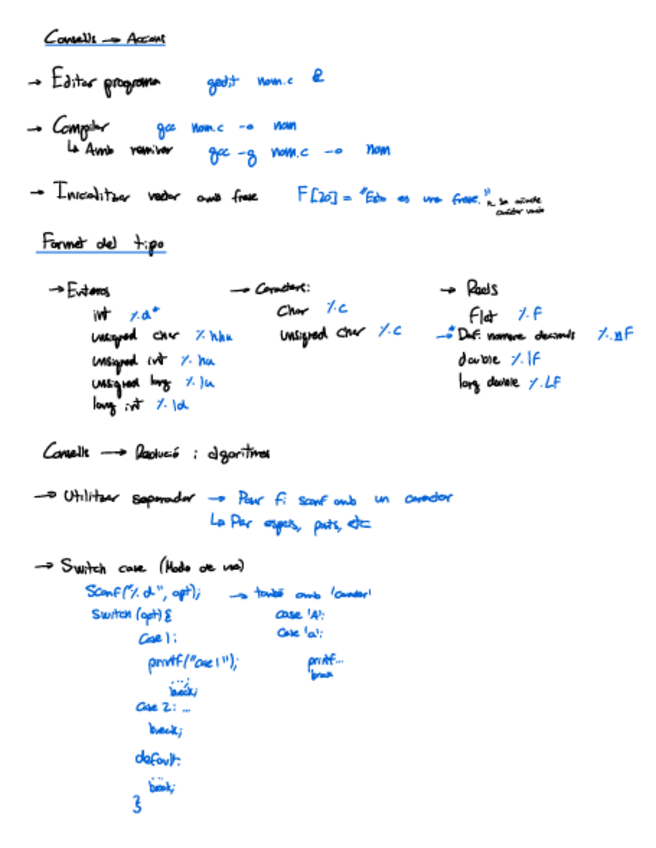 Consells → Accions
→ Editar programa gedit nom.c &
→ Compilar gcc nom.c -o nom
↳ Amb revisor gcc -g nom.c -o nom
→ Inicialitzar vector amb frase F[20] = "Esto es una frase."
Format del tipo
→ Enteros
int %d*
unsigned char %hhu
unsigned int %hu
unsigned long %lu
long int %ld
→ Caracters:
Char %c
unsigned char %c
→ Reals
Flot %F
→* Def. nombre decimals %.nF
double %lF
long double %LF
Consells → Resolució i algoritmes
→ Utilitzar separador → Posar fi scanf amb un caracter
↳ Per espais, punts, etc
→ Switch case (Modo de uso)
Scanf("%d", opt); → també amb 'caracter'
Switch (opt) {
Case 1:
printf("case 1");
...;
break;
Case 2: ...
break;
default:
...
break;
}
case 'A':
Case 'a':
printf...
break